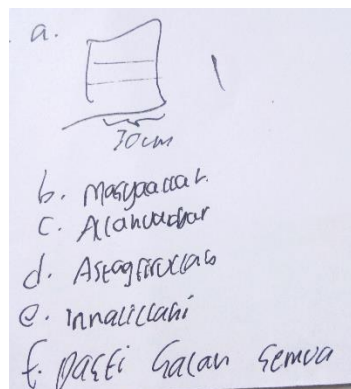 a.
30cm
b. Masyaallah.
c. Allahuakbar
d. Astagfirullah
e. innalillahi
f. pasti salah semua